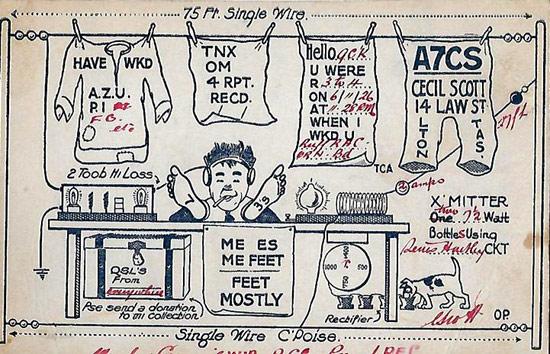 75 Ft. Single Wire
HAVE WKD
A.Z.U.
P.I
F.B.
etc
TNX
OM
4 RPT.
RECD.
Hello
U WERE
R
ON 6/11/26
AT
WHEN I
WKD U
TCA
A7CS
CECIL SCOTT
14 LAW ST
L'TON
TAS.
27 ft
2 Toob Hi Loss
Y
3S
2 amps
X'MITTER
One. two 7½ Watt
Bottles Using
Series Hartley CKT
ME ES
ME FEET
FEET
MOSTLY
QSL's
From
everywhere
Pse send a donation
to mi collection
1000
500
Rectifier
OP.
Single Wire C'Poise